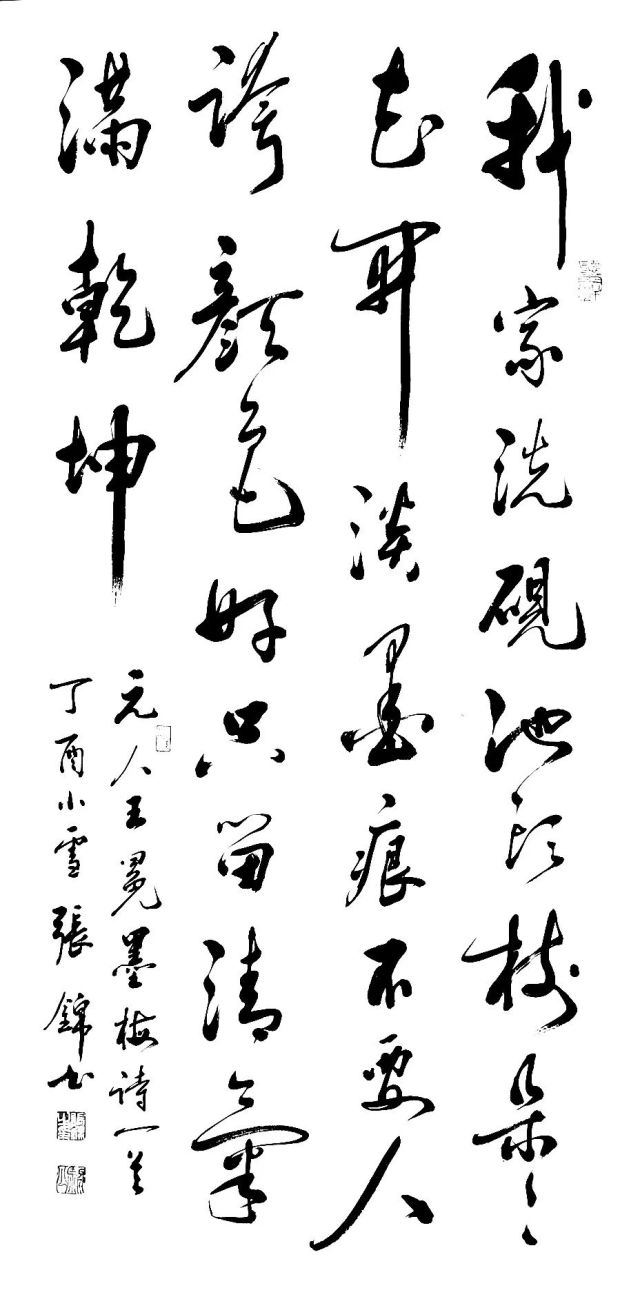 我家洗硯池頭树朵々
花開淡墨痕不要人
誇顔色好只留清氣
滿乾坤
元人王冕墨梅诗一首
丁酉小雪張錦书